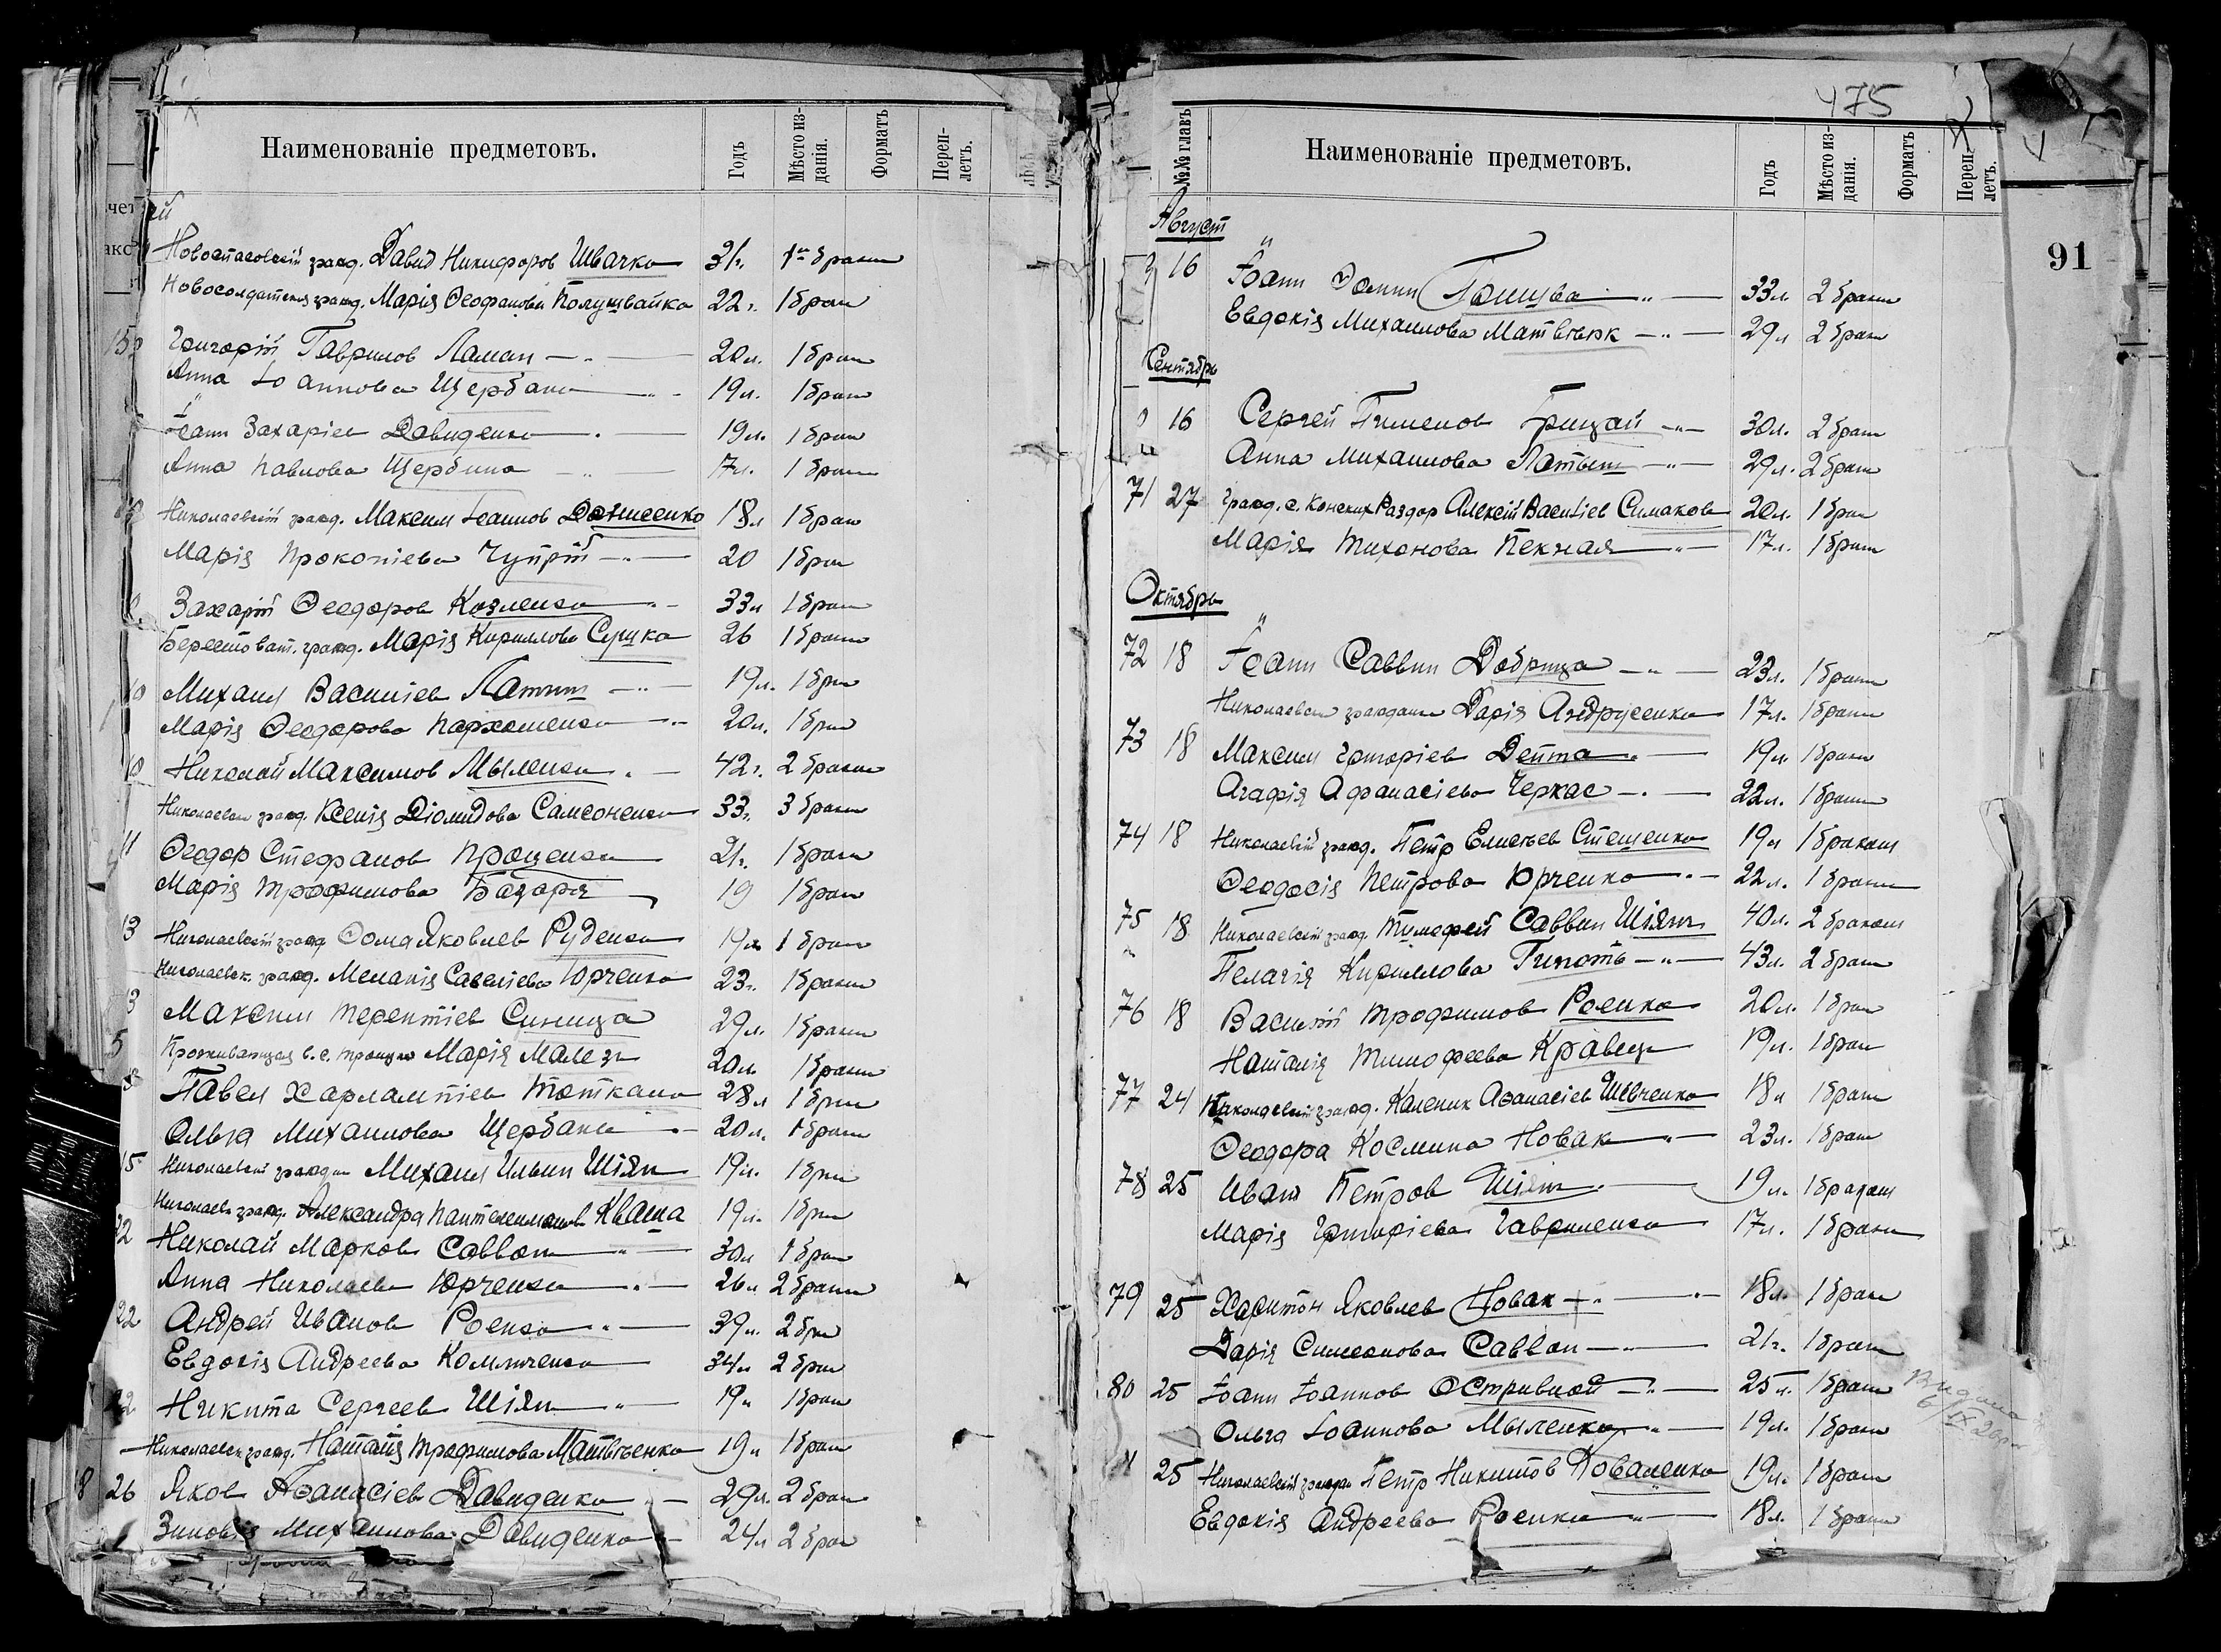 Наименованіе предметовъ.
Годъ
Мѣсто из-
данія.
Форматъ
Переп-
летъ.
Новоспасовскій гражд. Давид Никифоров Швачко 31г. 1м браком
Новосолдатская гражд. Марія Ѳеофанова Полушвайко 22г. 1 брак
Григорій Гаврилов Ламан 20л. 1 брак
Анна Іоаннова Щербань 19л. 1 брак
Іоанн Захаріев Давиденко 19л. 1 брак
Анна Павлова Щербина 17л. 1 брак
Николаевскій гражд. Максим Іоаннов Денисенко 18л 1 брак
Марія Прокопіева Чупрій 20 1 брак
Захарій Ѳеодоров Козленко 33л 1 брак
Берестоват. гражд. Марія Кириллова Сушко 26 1 брак
10 Михаил Василіев Латыш 19л. 1 брак
Марія Ѳеодорова Пархоменко 20л. 1 брак
10 Николай Максимов Мыленко 42г. 2 браком
Николаевск гражд. Ксенія Діомидова Самсоненко 33г. 3 браком
11 Ѳеодор Стефанов Проценко 21г. 1 браком
Марія Трофимова Базаря 19 1 брак
13 Николаевскій гражд Ѳома Яковлев Руденко 19л 1 брак
Николаевск. гражд. Меланія Савеліева Юрченко 23г. 1 браком
3 Максим Терентіев Синица 29л. 1 браком
5 Проживающая в с. Троицко Марія Малезя 20л. 1 браком
Павел Харлампіев Тоткало 28л 1 брак
Ольга Михаилова Щербань 20л. 1 брак
15 Николаевскій граждан Михаил Ильин Шіян 19л. 1 брак
Николаевк гражд. Александра Пантелеимонова Кваша 19л. 1 брак
22 Николай Марков Саввон 30л 1 брак
Анна Николаева Юрченко 26л 2 браком
22 Андрей Иванов Роенко 39л. 2 брак
Евдокія Андреева Колниченко 34л 2 брак
22 Никита Сергеев Шіян 19л 1 брак
Николаевск гражд. Наталія Трофимова Матвѣенко 19л 1 брак
8 26 Яков Аѳанасіев Давиденко 29л. 2 брак
Зиновія Михаилова Давиденко 24л 2 брак
475
№№ главъ
Наименованіе предметовъ.
Годъ
Мѣсто из-
данія.
Форматъ
Переп-
летъ.
91
Август
16 Іоанн Ѳомин 33л. 2 браком
Евдокія Михаилова Матвѣюк 29л 2 брак
Сентябрь
16 Сергей Пименов Грицай 30л. 2 брак
Анна Михаилова Латыш 29л. 2 брак
71 27 гражд. с. Конских Раздор Алексій Василіев Симаков 20л. 1 брак
Марія Тихонова Пекная 17л. 1 брак
Октябрь
72 18 Іоанн Саввин Добрица 23л. 1 браком
Николаевск гражданк Дарія Андрусенко 17л. 1 браком
73 18 Максим Григоріев Дейта 19л 1 браком
Агафія Афанасіева Черкас 22л. 1 браком
74 18 Николаевскій гражд. Петр Елисѣев Стешенко 19л 1 браком
Ѳеодосія Петрова Юрченко 22л. 1 браком
75 18 Николаевскій гражд. Тимофей Саввин Шіян 40л. 2 браком
Пелагія Кириллова Гипоть 43л. 2 брак
76 18 Василій Трофимов Роенко 20л. 1 брак
Наталія Тимофеева Кравец 19л. 1 брак
77 24 Николаевскій гражд. Каленик Аѳанасіев Шевченко 18л 1 брак
Ѳеодора Космина Новак 23л. 1 брак
78 25 Иван Петров Шіян 19л. 1 браком
Марія Григоріева Гавриленко 17л. 1 браком
79 25 Харитон Яковлев Новак 18л. 1 брак
Дарія Симеонова Саввон 21г. 1 брак
80 25 Іоанн Іоаннов Остривной 25л. 1 браком
Ольга Іоаннова Мыленко 19л. 1 брак
25 Николаевскій граждан Петр Никитов Коваленко 19л. 1 брак
Евдокія Андреева Роенко 18л. 1 брак